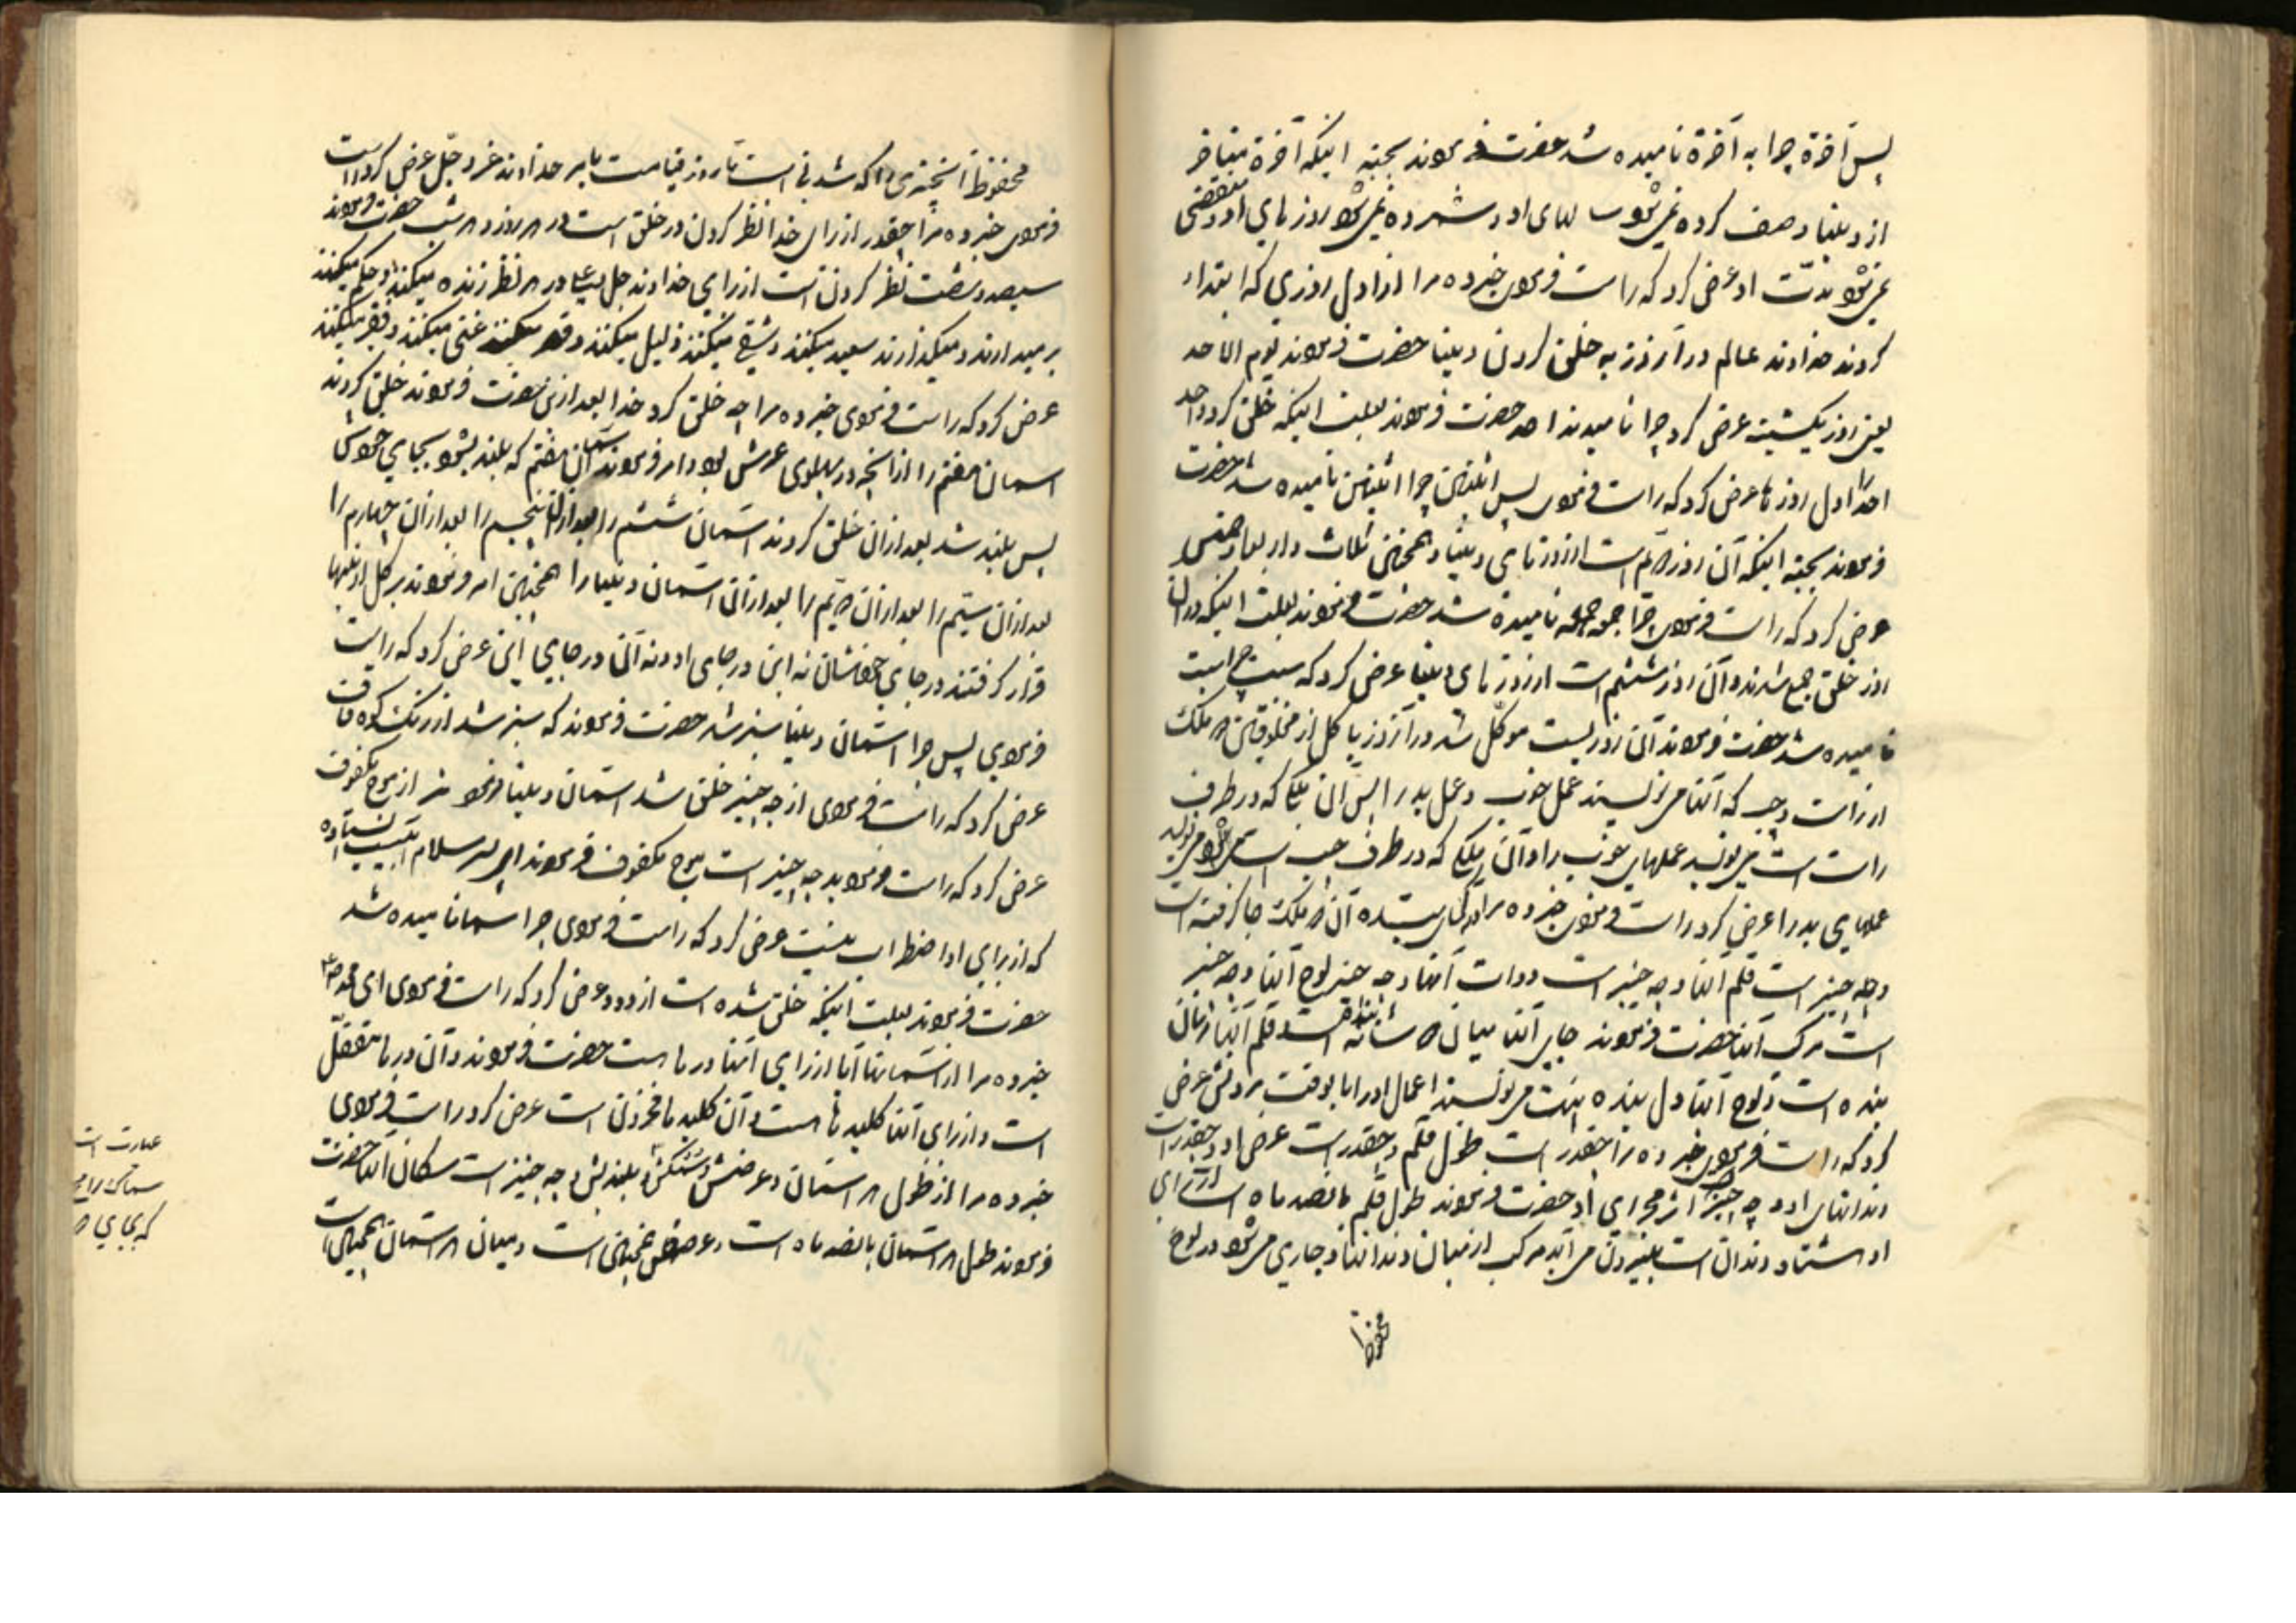 پس آخرة چرا به آخرة نامیده شد حضرت فرمودند بجهة اینکه آخرة متاخر
از دنیا وصف کرده نمیشود سالهای او و شمرده نمیشود روزهای او و منقضی
نمیشود مدّت او عرض کرد که راست فرمودی خبر ده مرا از اول روزی که ابتداء
کردند خداوند عالم در آنروز به خلق کردن دنیا حضرت فرمودند یوم الاحد
یعنی روز یکشنبه عرض کرد چرا نامیدند احد حضرت فرمودند بعلت اینکه خلق کرد واحد
احد را اول روزها عرض کرد که راست فرمودی پس اثنین چرا اثنین نامیده شد حضرت
فرمودند بجهة اینکه آن روز دویّم است از روزهای دنیا و همچنین ثلاث و اربعا و خمیس
عرض کرد که راست فرمودی چرا جمعه جمعه نامیده شد حضرت فرمودند بعلت اینکه در آن
روز خلق جمع شدند و آن روز ششم است از روزهای دنیا عرض کرد که سبت چرا سبت
نامیده شد حضرت فرمودند آن روزیست موکّل شد در آنروز با کل از مخلوقین دو ملک
از راست و چپ که آنها می نویسند عمل خوب و عمل بد را پس آن ملکی که در طرف
راست است می نویسد عملهای خوب را و آن ملکی که در طرف چپ است می نویسد
عملهای بد را عرض کرد راست فرمودی خبر ده مرا در کجای بنده آن دو ملک جا گرفته است
و چه چیز است قلم آنها و چه چیز است دوات آنها و چه چیز لوح آنها و چه چیز
است مرکب آنها حضرت فرمودند جای آنها میان دو شانه است و قلم آنها زبان
بنده است و لوح آنها دل بنده است می نویسند اعمال او را تا بوقت مردنش عرض
کرد که راست فرمودی خبر ده مرا چقدر است طول قلم و چقدر است عرض او و چقدر است
دندانهای او و چه چیز است اثر مجرای او حضرت فرمودند طول قلم پانصد ماه است از برای
او هشتاد دندان است بیرون می آید مرکب از میان دندانها و جاری می شود در لوح
محفوظ
محفوظ آنچیزی را که شدنی است تا روز قیامت بامر خداوند عز و جل عرض کرد راست
فرمودی خبر ده مرا چقدر از برای خدا نظر کردن در خلق است در هر روز و هر شب حضرت فرمودند
سیصد و شصت نظر کردن است از برای خداوند جل و علا در هر نظر زنده میکنند و حکم میکنند
بر میدارند و میگذارند سعید میکنند و شقی میکنند ذلیل میکنند و میکنند غنی میکنند و فقیر میکنند
عرض کرد که راست فرمودی خبر ده مرا چه خلق کرد خدا بعد از این حضرت فرمودند خلق کردند
آسمان هفتم را از آنچه در پهلوی عرش بود و امر فرمودند بآسمان هفتم که بلند بشو بجای خودش
پس بلند شد بعد از آن خلق کردند آسمان ششم را بعد از آن پنجم را بعد از آن چهارم را
بعد از آن سیّم را بعد از آن دویّم را بعد از آن آسمان دنیا را همچنین امر فرمودند بر کل از اینها
قرار گرفتند در جای خودشان نه این در جای او و نه آن در جای این عرض کرد که راست
فرمودی پس چرا آسمان دنیا سبز شد حضرت فرمودند که سبز شد از رنگ کوه قاف
عرض کرد که راست فرمودی از چه چیز خلق شد آسمان دنیا فرمودند از موج مکفوف
عرض کرد که راست فرمودید چه چیز است موج مکفوف فرمودند ای پسر سلام آبیست ایستاده
که از برای او اضطراب نیست عرض کرد که راست فرمودی چرا سما نامیده شد
حضرت فرمودند بعلت اینکه خلق شده است از دود عرض کرد که راست فرمودی ای محمد ص
خبر ده مرا از آسمانها آیا از برای آنها درها است حضرت فرمودند و آن درها مقفّل
است و از برای آنها کلیدها هست و آن کلیدها مخزون است عرض کرد راست فرمودی
خبر ده مرا از طول هر آسمان و عرضش و بلندیش و چه چیز است سکان آنها حضرت
فرمودند طول هر آسمان پانصد ماه است و عرضش همچنین است و میان هر آسمان همچنین است
عبارت است
که بجای